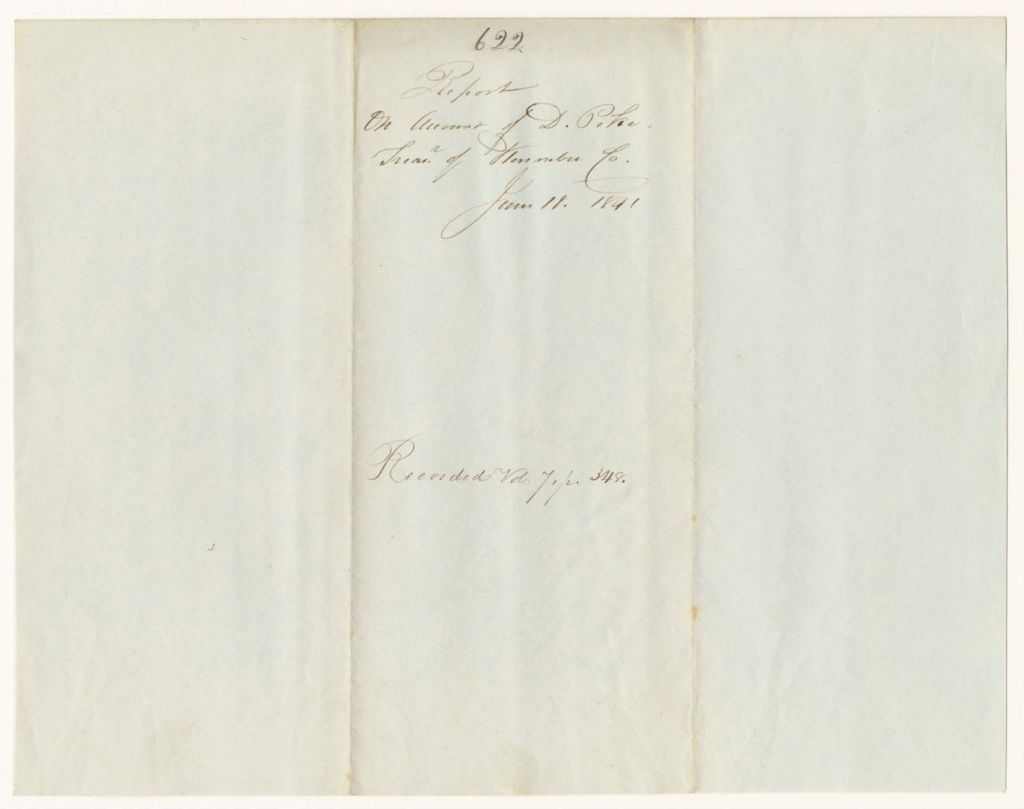 622.
Report
On Account of D. Pike.
Treasr of Kennebec Co.
June 18. 1841
Recorded Vol. 7, p. 348.